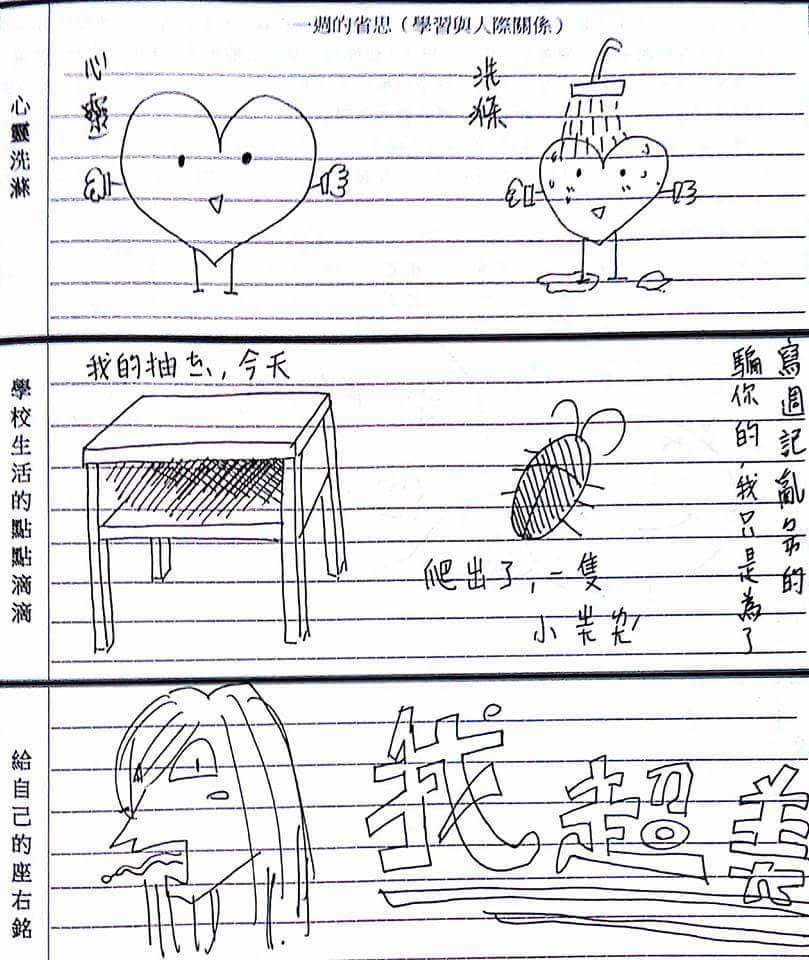 一週的省思（學習與人際關係）
心靈洗滌
心
洗滌
學校生活的點點滴滴
我的抽,今天
爬出了,一隻
小
騙你的,我只是為了
寫週記亂的
給自己的座右銘
我超美